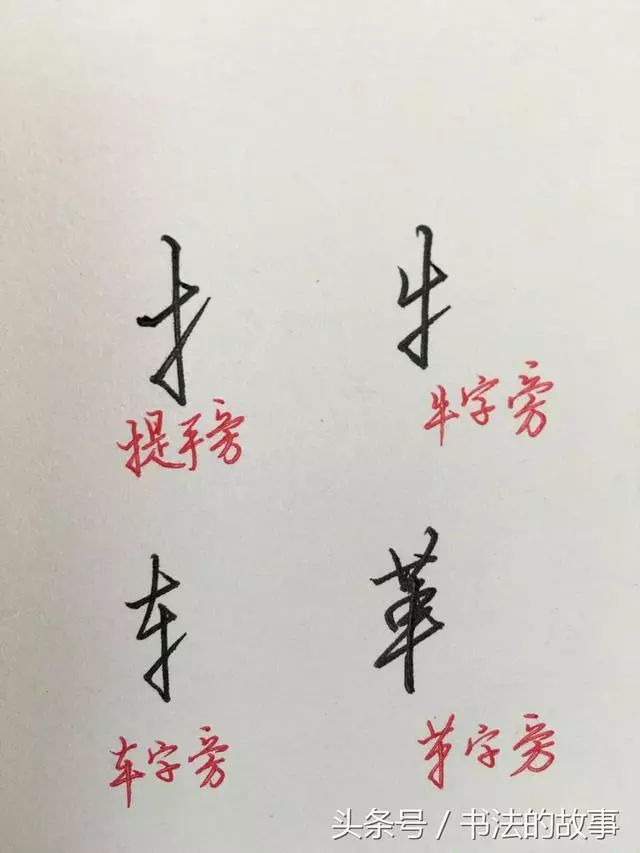 扌 牜
提手旁 牛字旁
车 革
车字旁 革字旁
头条号 / 书法的故事